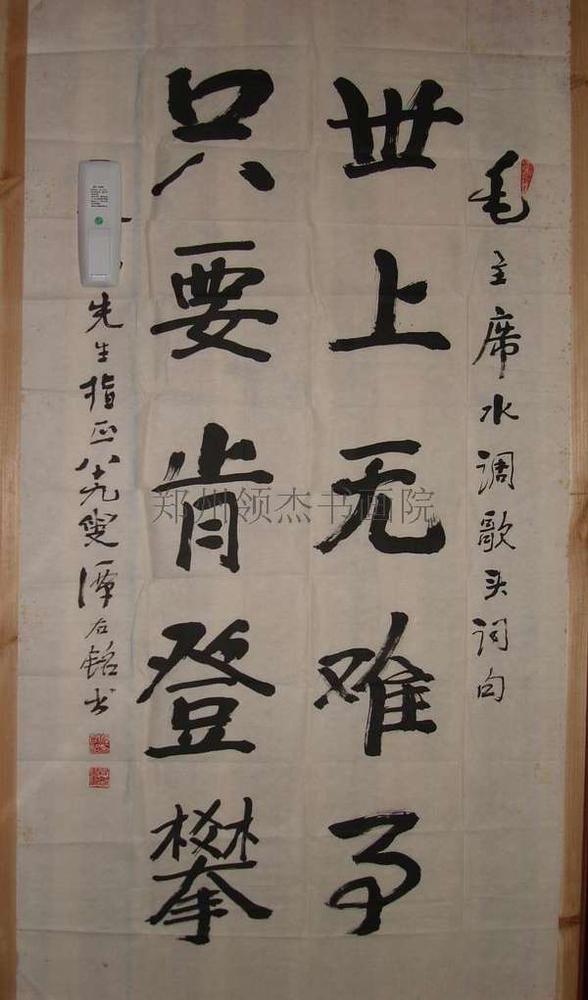 毛主席水调歌头词句
世上无难事
只要肯登攀
先生指正八十九叟谭右铭书
郑州领杰书画院